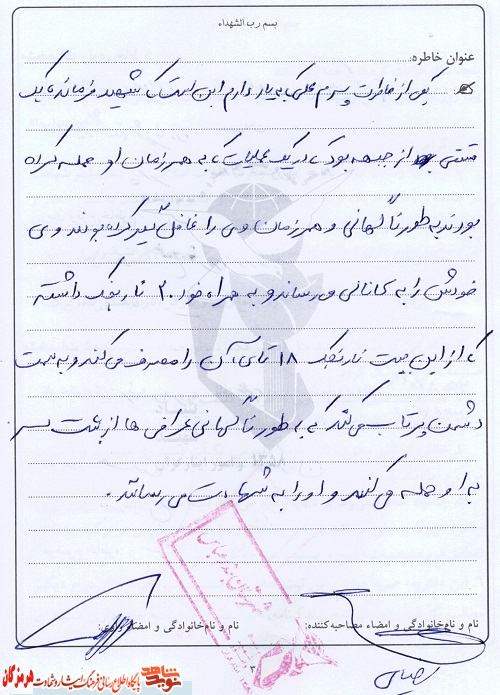 بسم رب الشهداء
عنوان خاطره:
یکی از خاطرات پسرم علی که به یاد دارم این است که شهید فرمانده یک
قسمتی از جبهه بود که در یک عملیات که به همرزمان او حمله کرده
بودند به طور ناگهانی و همرزمان وی را غافلگیر کرده بودند وی
خودش را به کانالی می رساند و به همراه خود ۲۰ نارنجک داشته
که از این بیست نارنجک ۱۸ تای آن را مصرف می کند و به سمت
دشمن پرتاب می کند که به طور ناگهانی عراقی ها از پشت سر
به او حمله می کنند و او را به شهادت می رسانند.
نام و نام‌خانوادگی و امضاء مصاحبه‌کننده:
نام و نام‌خانوادگی و امضاء راوی:
نوید شاهد
پایگاه اطلاع رسانی فرهنگ ایثار و شهادت هرمزگان